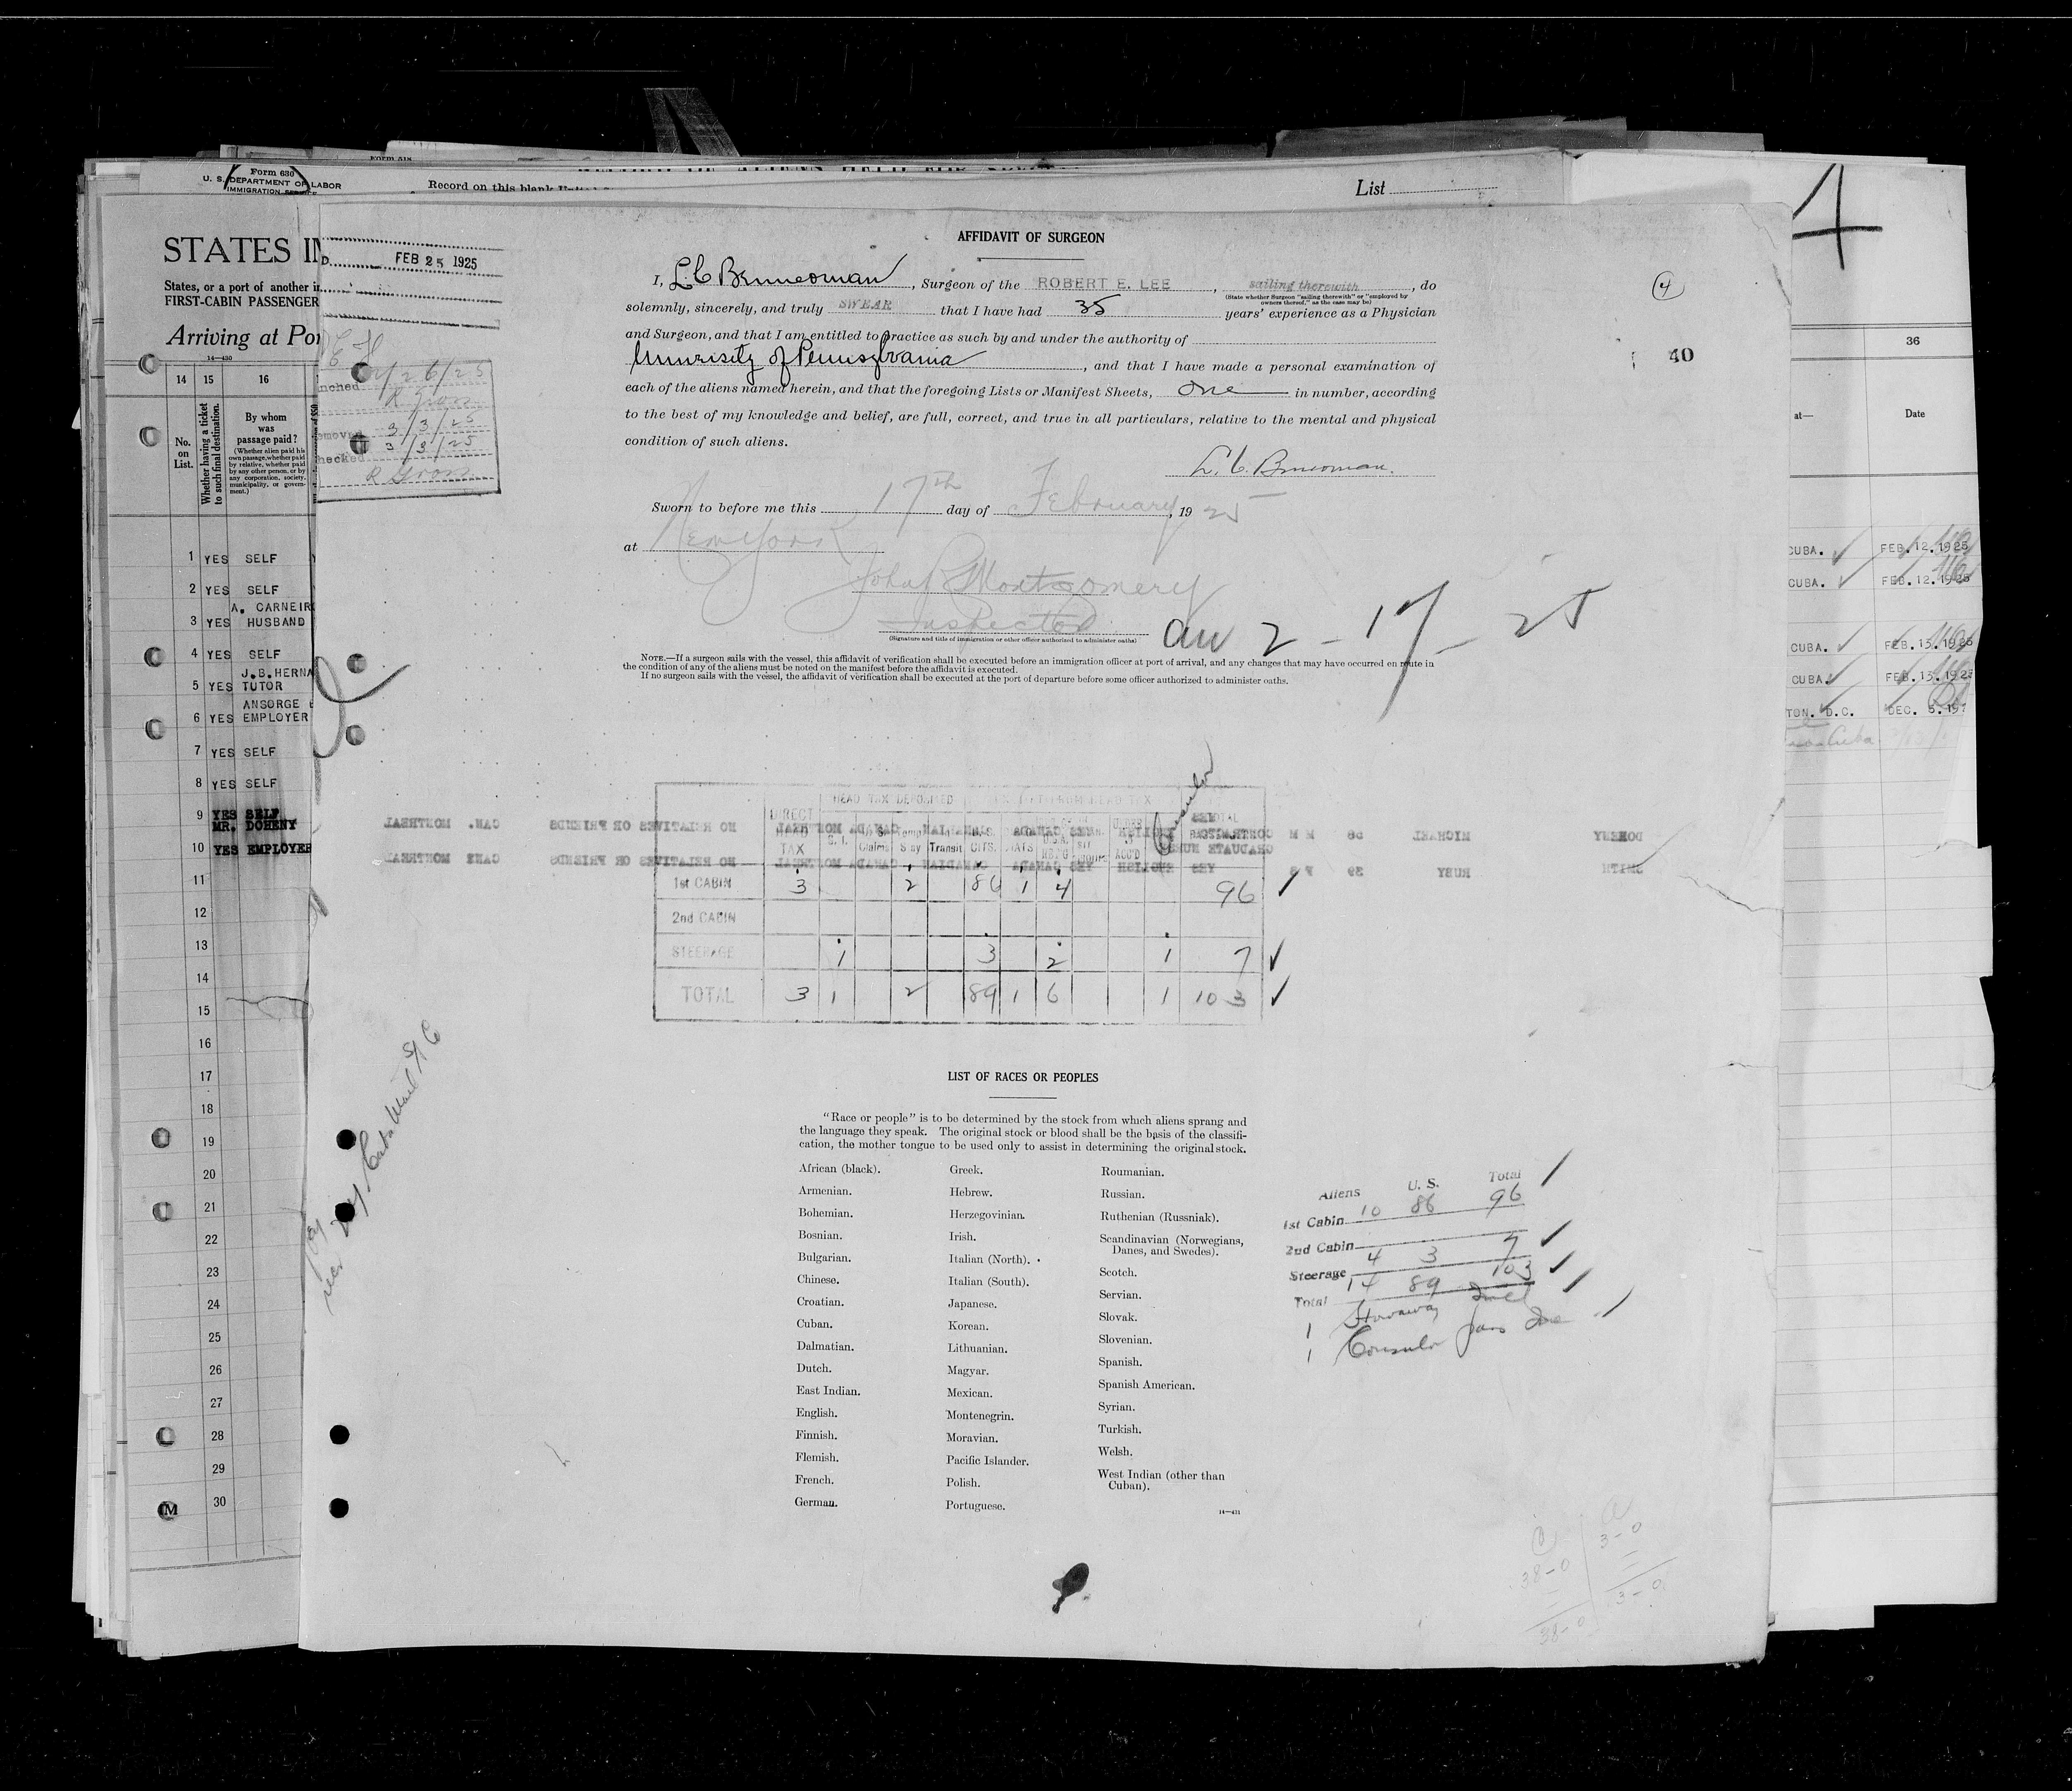 Form 518
Form 630
U. S. DEPARTMENT OF LABOR
IMMIGRATION SERVICE
Record on this blank
List
STATES
States, or a port of another
FIRST-CABIN PASSENGER
Arriving at Por
14—430
14 15 16
No. on List.
Whether having a ticket to such final destination.
By whom was passage paid?
(Whether alien paid his own passage, whether paid by relative, whether paid by any other person, or by any corporation, society, municipality, or government.)
1 YES SELF
2 YES SELF
A. CARNEIR
3 YES HUSBAND
4 YES SELF
J.B.HERNA
5 YES TUTOR
ANSORGE
6 YES EMPLOYER
7 YES SELF
8 YES SELF
9 YES SELF
MR. DOHENY
10 YES EMPLOYER
11
12
13
14
15
16
17
18
19
20
21
22
23
24
25
26
27
28
29
30
M
FEB 25 1925
2/26/25
3/3/25
3/3/25
AFFIDAVIT OF SURGEON
4
40
I, , Surgeon of the ROBERT E. LEE, sailing therewith, do
(State whether Surgeon "sailing therewith" or "employed by owners thereof," as the case may be)
solemnly, sincerely, and truly SWEAR that I have had 35 years' experience as a Physician
and Surgeon, and that I am entitled to practice as such by and under the authority of
University of Pennsylvania, and that I have made a personal examination of
each of the aliens named herein, and that the foregoing Lists or Manifest Sheets, one in number, according
to the best of my knowledge and belief, are full, correct, and true in all particulars, relative to the mental and physical
condition of such aliens.
Sworn to before me this 17th day of February, 1925
at New York
John R Montgomery
Inspector
(Signature and title of immigration or other officer authorized to administer oaths)
2-17-25
NOTE.—If a surgeon sails with the vessel, this affidavit of verification shall be executed before an immigration officer at port of arrival, and any changes that may have occurred en route in
the condition of any of the aliens must be noted on the manifest before the affidavit is executed.
If no surgeon sails with the vessel, the affidavit of verification shall be executed at the port of departure before some officer authorized to administer oaths.
HEAD TAX DEPOSITED
DIRECT
TAX
Transit
CITS.
Consular
TOTAL
1st CABIN 3 2 86 1 4 96
2nd CABIN
STEERAGE 1 3 2 1 7
TOTAL 3 1 2 89 1 6 1 103
LIST OF RACES OR PEOPLES
"Race or people" is to be determined by the stock from which aliens sprang and
the language they speak. The original stock or blood shall be the basis of the classifi-
cation, the mother tongue to be used only to assist in determining the original stock.
African (black).
Armenian.
Bohemian.
Bosnian.
Bulgarian.
Chinese.
Croatian.
Cuban.
Dalmatian.
Dutch.
East Indian.
English.
Finnish.
Flemish.
French.
German.
Greek.
Hebrew.
Herzegovinian.
Irish.
Italian (North).
Italian (South).
Japanese.
Korean.
Lithuanian.
Magyar.
Mexican.
Montenegrin.
Moravian.
Pacific Islander.
Polish.
Portuguese.
Roumanian.
Russian.
Ruthenian (Russniak).
Scandinavian (Norwegians,
Danes, and Swedes).
Scotch.
Servian.
Slovak.
Slovenian.
Spanish.
Spanish American.
Syrian.
Turkish.
Welsh.
West Indian (other than
Cuban).
14—431
Aliens U. S. Total
1st Cabin 10 86 96
2nd Cabin
Steerage 4 3 7
Total 14 89 103
1 Stowaway
1 Consular
38-0 3-0
38-0 3-0
4
36
at—
Date
CUBA. FEB.12.1925
CUBA. FEB.12.1925
CUBA. FEB.13.1925
CUBA. FEB.13.1925
TON. D.C. DEC. 5.19
Cuba